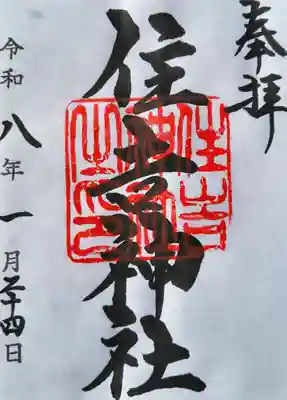 奉拝
住吉神社
令和八年一月二十四日